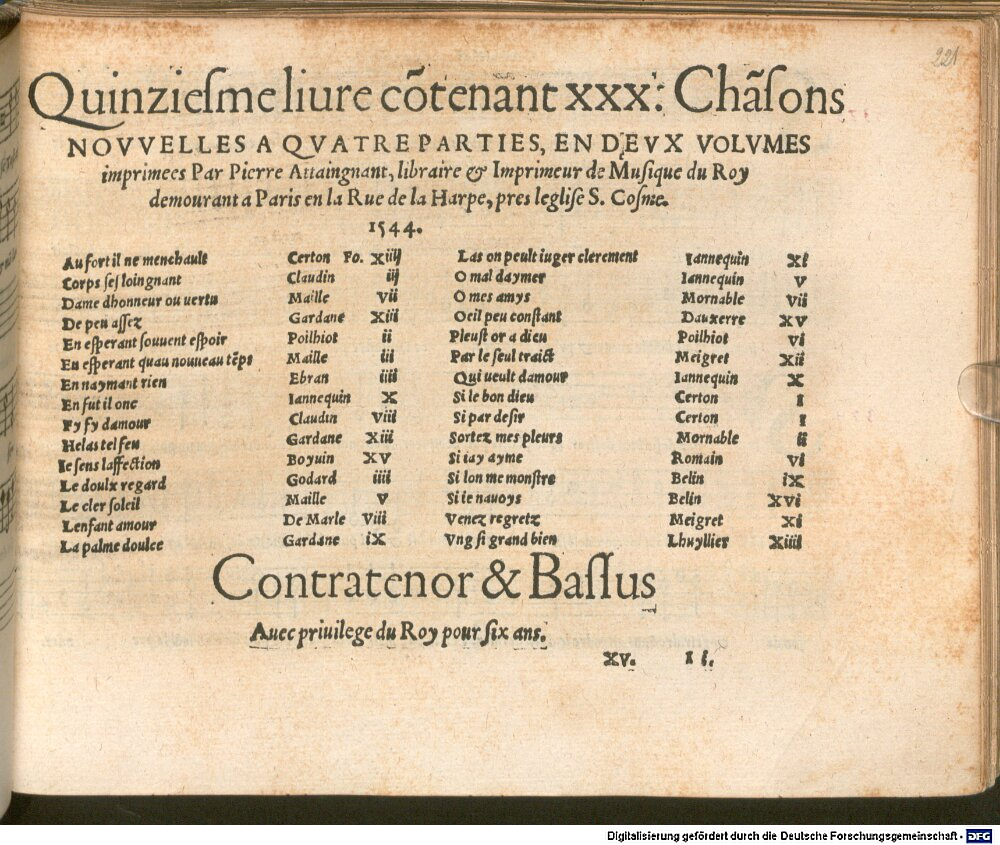 221
Quinzieſme liure cõtenant xxx: Chãſons
NOVVELLES A QVATRE PARTIES, EN DEVX VOLVMES
imprimees Par Pierre Attaingnant, libraire & Imprimeur de Muſique du Roy
demourant a Paris en la Rue de la Harpe, pres legliſe S. Coſme.
1544.
Au fort il ne menchault Certon Fo. xiiij
Corps ſesloingnant Claudin iij
Dame dhonneur ou vertu Maille vii
De peu aſſez Gardane xiii
En eſperant ſouuent eſpoir Poilhiot ii
En eſperant quau nouueau tẽps Maille iii
En naymant rien Ebran iiii
En fut il onc Iannequin x
Fy fy damour Claudin viii
Helas tel feu Gardane xiii
Ie ſens laffection Boyuin xv
Le doulx regard Godard iiii
Le cler ſoleil Maille v
Lenfant amour De Marle viii
La palme doulce Gardane ix
Las on peult iuger clerement Iannequin xi
O mal daymer Iannequin v
O mes amys Mornable vii
Oeil peu conſtant Dauxerre xv
Pleuſt or a dieu Poilhiot vi
Par le ſeul traict Meigret xii
Qui ueult damour Iannequin x
Si le bon dieu Certon i
Si par deſir Certon i
Sortez mes pleurs Mornable ii
Si iay ayme Romain vi
Si lon me monſtre Belin ix
Si ie nauoys Belin xvi
Venez regretz Meigret xi
Vng ſi grand bien Lhuyllier xiiii
Contratenor & Baſſus
Auec priuilege du Roy pour ſix ans.
xv. I i.
Digitalisierung gefördert durch die Deutsche Forschungsgemeinschaft - DFG